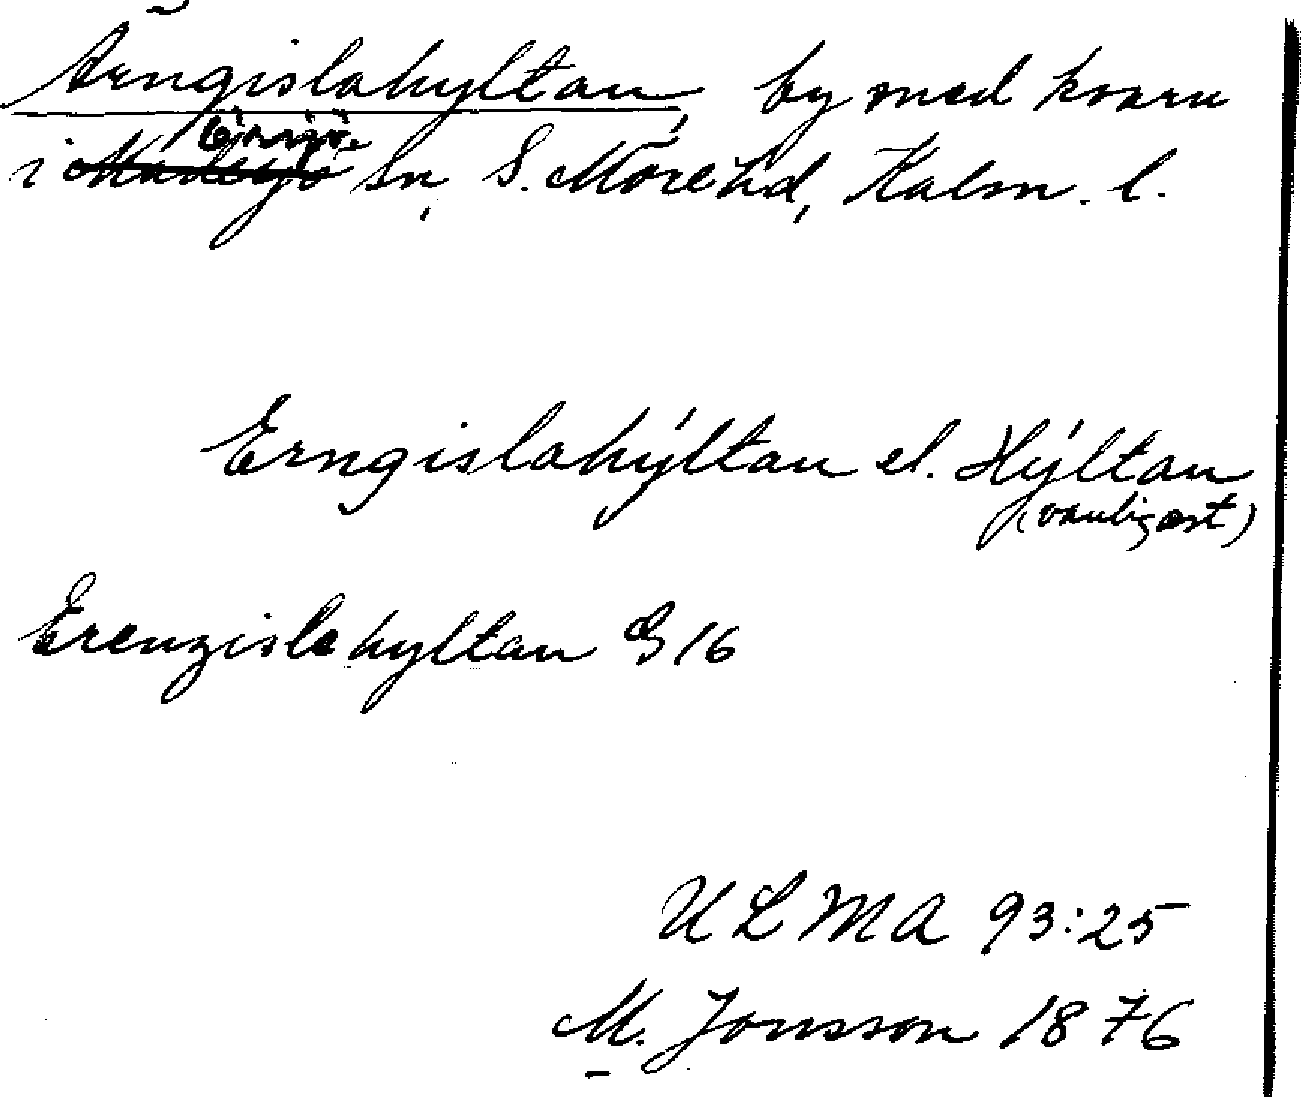 Arngislahyltan, by med kvarn
i Örsjö sn, S. Möre hd, Kalm. l.
Erngislahýltan el. Hýltan
(vanligast)
Erengislehyltan G 16
ULMA 93:25
M. Jonsson 1876